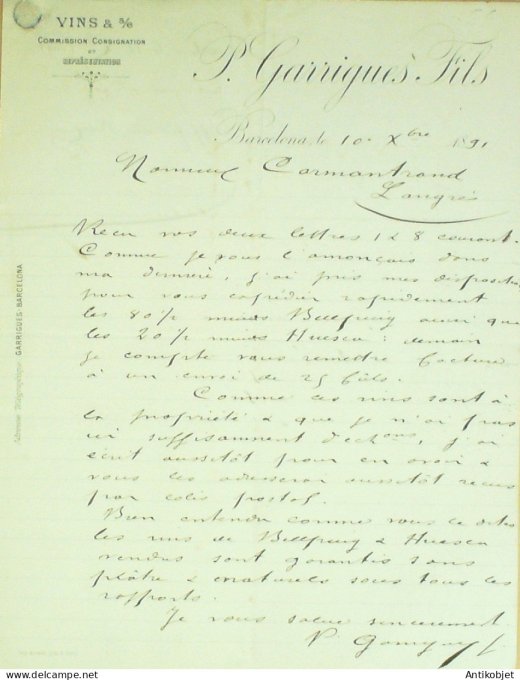 VINS & 3/6
COMMISSION CONSIGNATION
ET
REPRÉSENTATION
P. Garrigues Fils
Barcelona, le 10 Xbre 1891
Monsieur Cormantrand
Langres
Reçu vos deux lettres 1 & 8 courant.
Comme je vous l'annonçais dans
ma dernière, j'ai pris mes disposition
pour vous expédier rapidement
les 80/2 muids Bellpuig ainsi que
les 20/2 muids Huesca : demain
je compte vous remettre facture
à un envoi de 25 fûts.
Comme les vins sont à
la propriété & que je n'ai pas
ici suffisamment d'echons, j'ai
écrit aussitôt pour en avoir &
vous les adresserai aussitôt reçus
par colis postal.
Bien entendu comme vous le dites
les vins de Bellpuig & Huesca
vendus sont garantis sans
plâtre & naturels sous tous les
rapports.
Je vous salue sincèrement
P. Garrigues f
Adresse Télégraphique GARRIGUES-BARCELONA
www.delcampe.net
Antikobjet